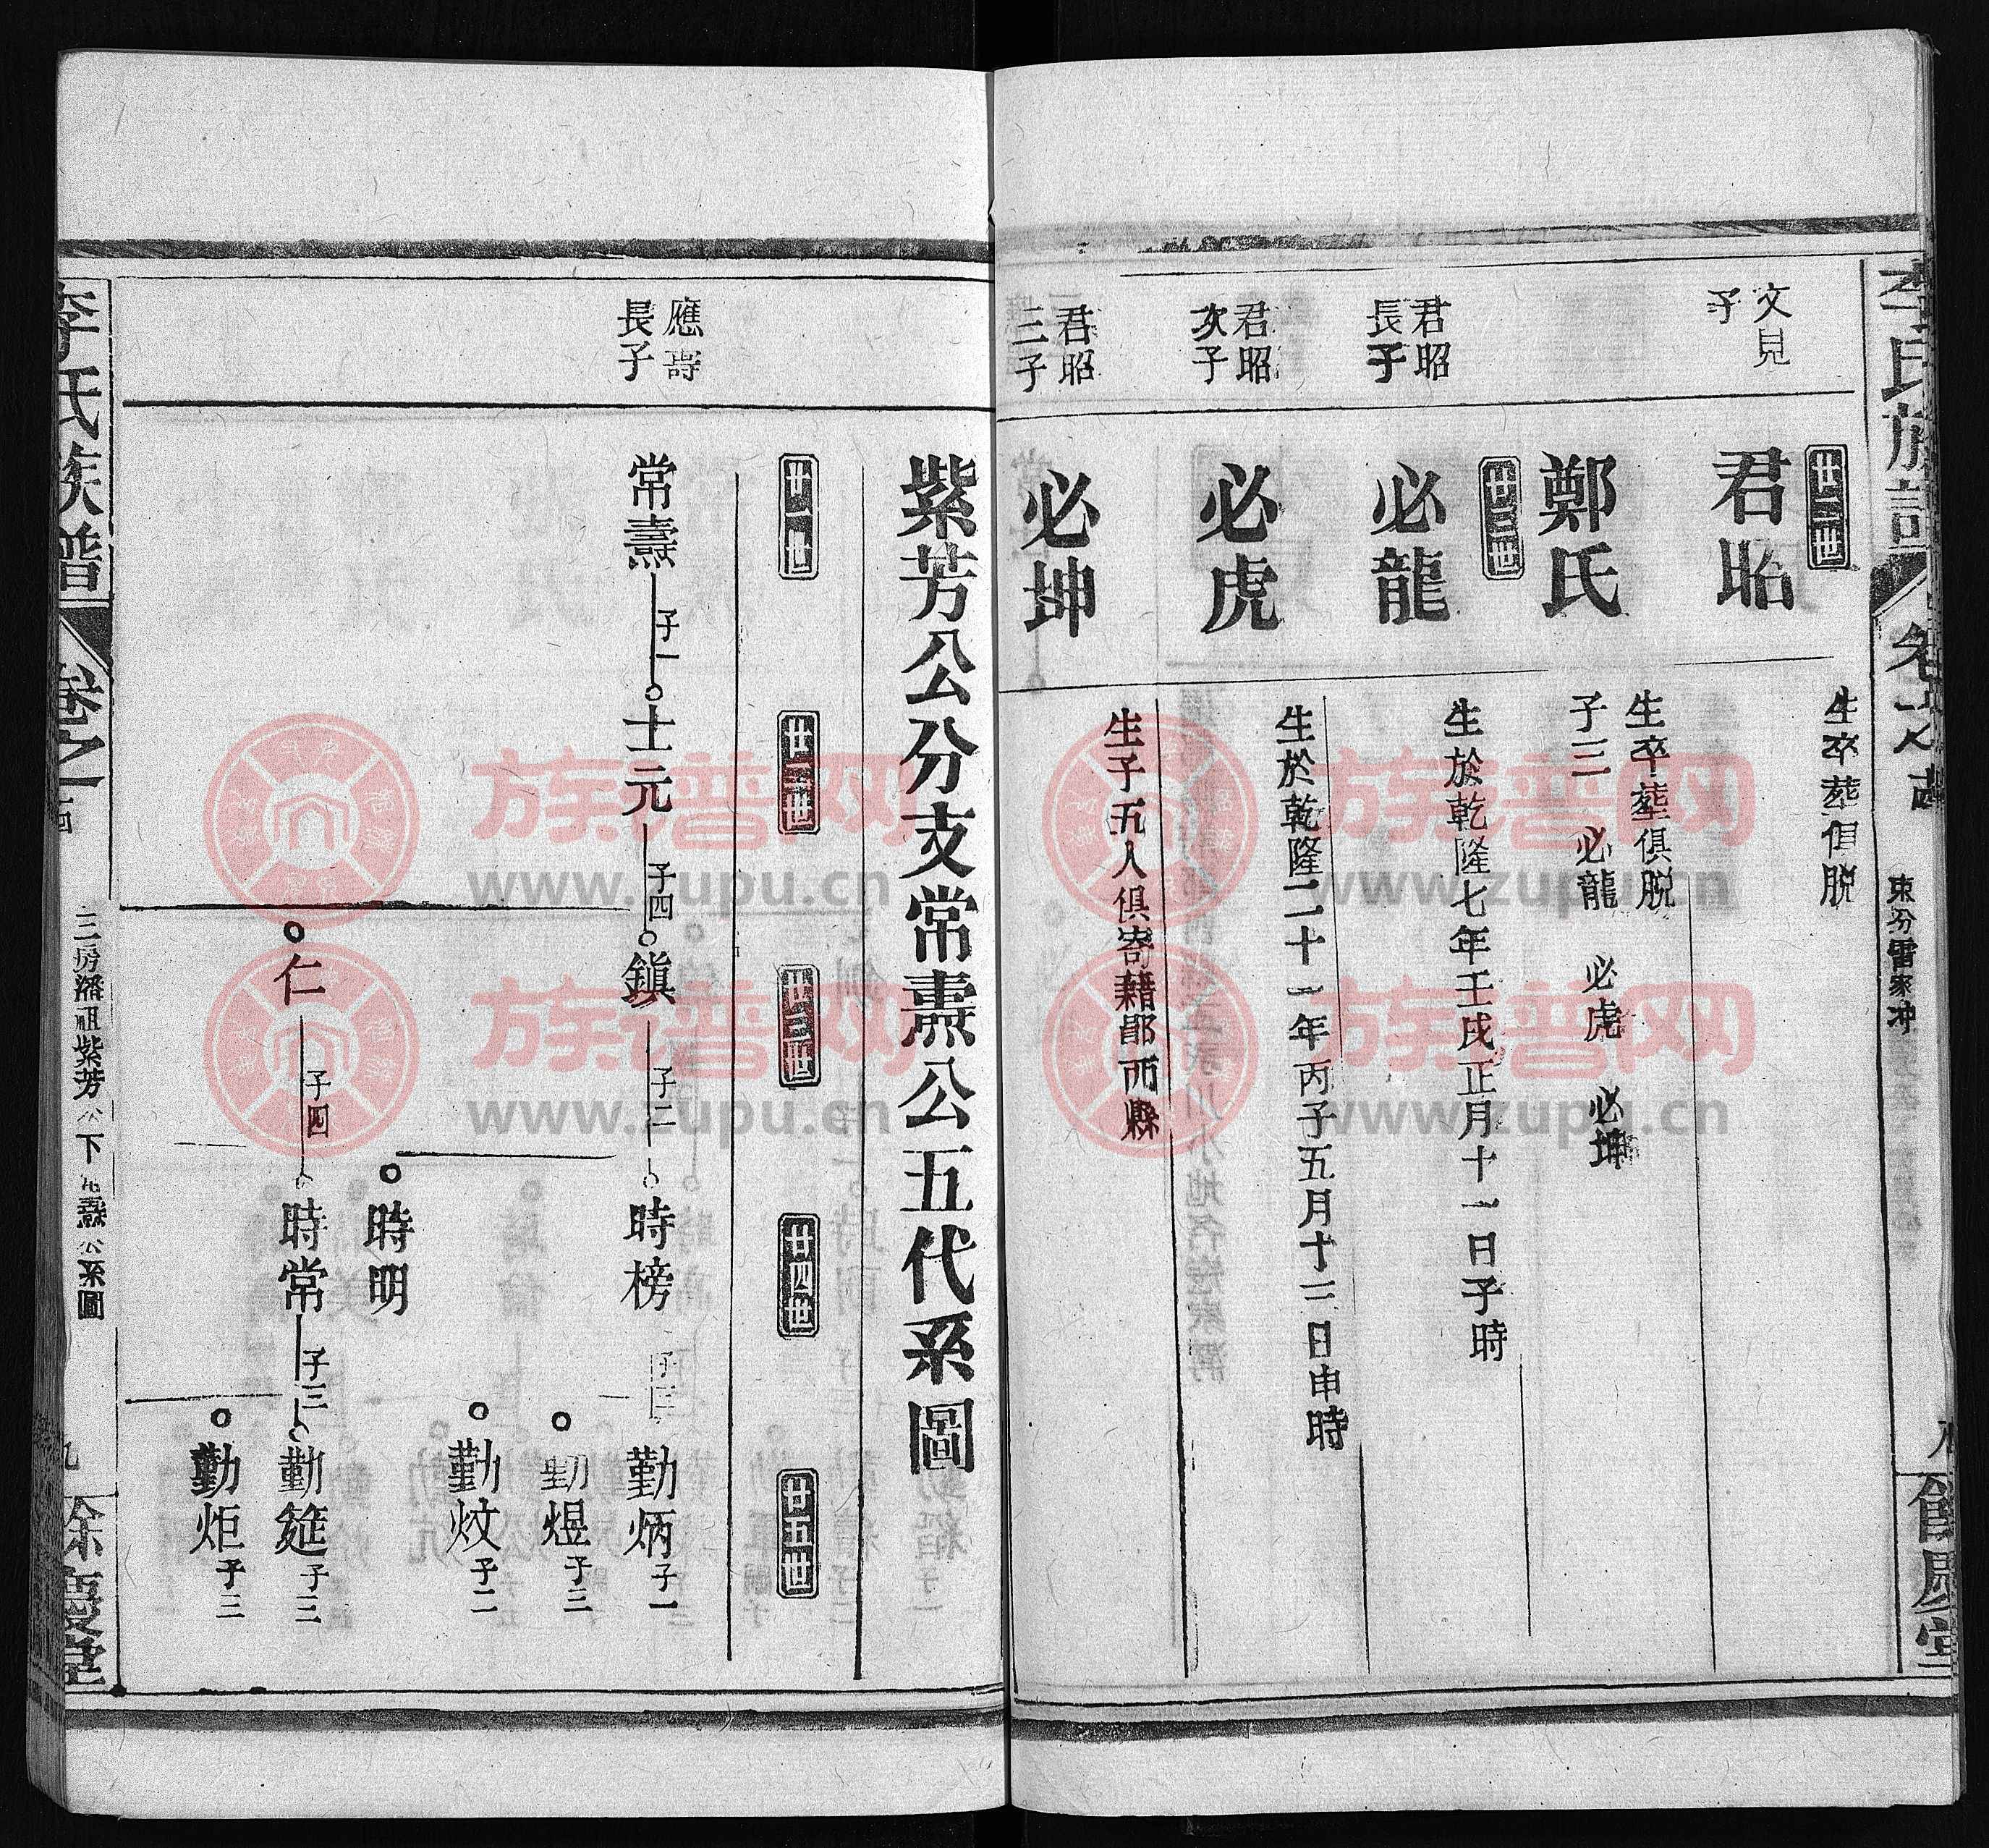 李氏族譜
東分雷家冲
文見
子
廿二世
君昭
生卒葬俱脫
鄭氏
生卒葬俱脫
子三 必龍 必虎 必坤
廿三世
君昭
長子
必龍
生於乾隆七年壬戌正月十一日子時
君昭
次子
必虎
生於乾隆二十一年丙子五月十二日申時
君昭
三子
必坤
生子五人俱寄藉鄖西縣
紫芳公分支常燾公五代系圖
廿一世
廿二世
廿三世
廿四世
廿五世
應壽
長子
常燾
子一
士元
子四
鎮
子二
時榜
子三
勤炳
子一
勤煜
子三
勤炆
子二
時明
仁
子四
時常
子三
勤筵
子三
勤炬
子三
李氏族譜
卷之
三房潘祖紫芳公下常燾公系圖
九
餘慶堂
族谱网
www.zupu.cn
族谱网
www.zupu.cn
族谱网
www.zupu.cn
族谱网
www.zupu.cn